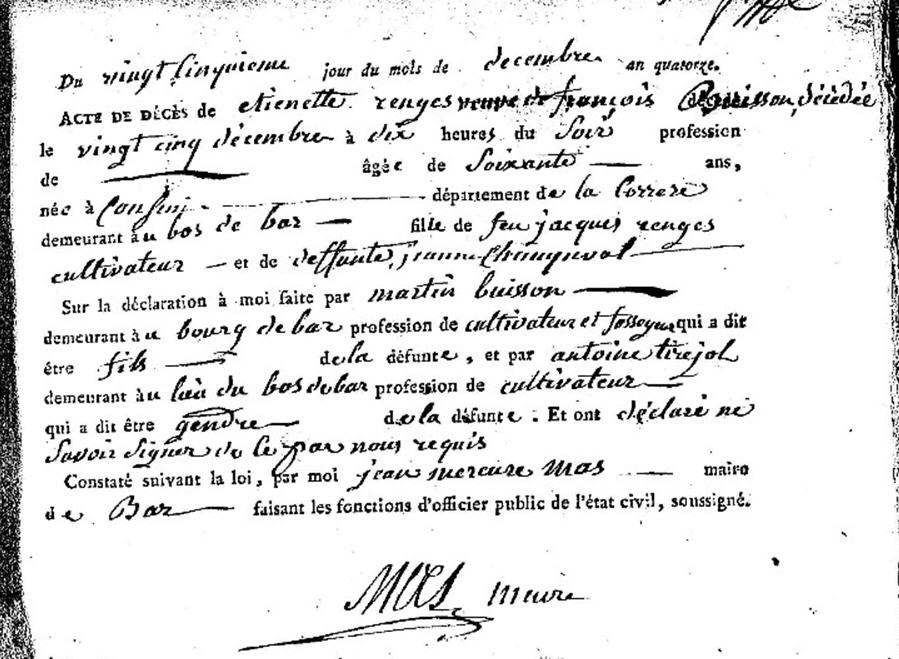 Du vingt cinquieme jour du mois de decembre an quatorze.
ACTE DE DÉCÈS de etienette renges veuve de françois Buisson décédée
le vingt cinq décembre à dix heures du Soir profession
de âgée de Soixante ans,
née à département de la Correze
demeurant au bos de bar fille de feu jacques renges
cultivateur et de deffunte jeanne
Sur la déclaration à moi faite par martin buisson
demeurant au bourg de bar profession de cultivateur et fossoyeur qui a dit
être fils de la défunte, et par antoine tirejol
demeurant au lieu du bos de bar profession de cultivateur
qui a dit être gendre de la défunte. Et ont déclaré ne
Savoir Signer de ce par nous requis
Constaté suivant la loi, par moi jean mercure mas maire
de Bar faisant les fonctions d'officier public de l'état civil, soussigné.
Mas maire